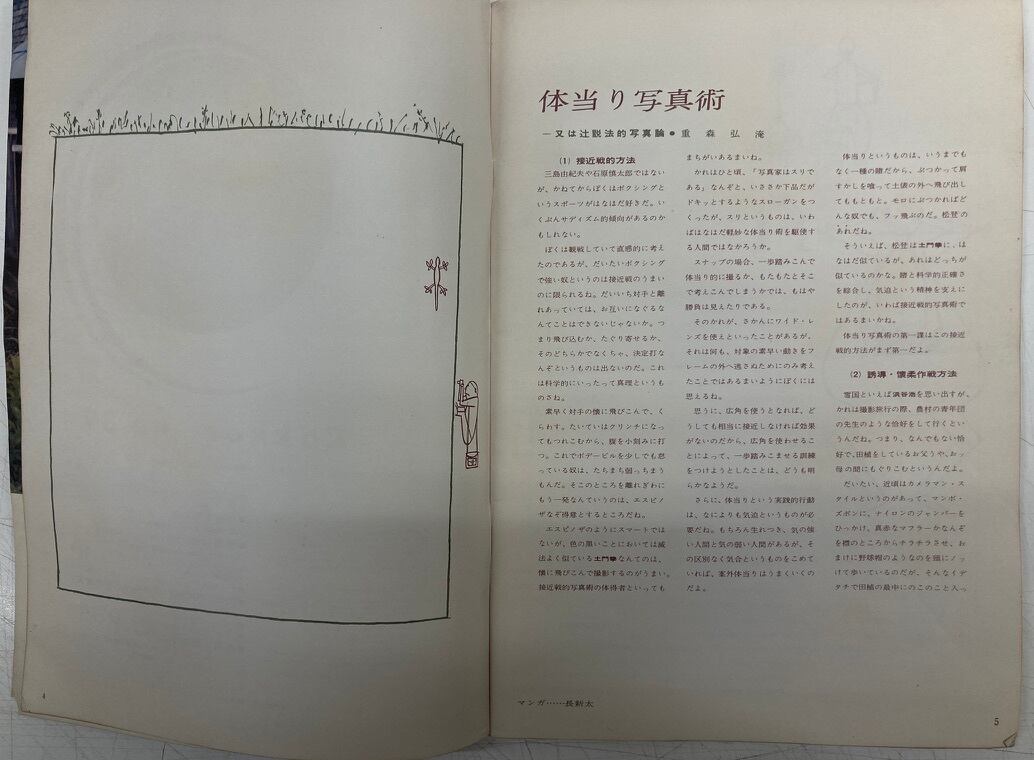 4
体当り写真術
―又は辻説法的写真論●重森弘淹
(1) 接近戦的方法
三島由紀夫や石原慎太郎ではない
が、かねてからぼくはボクシングと
いうスポーツがはなはだ好きだ。い
くぶんサディズム的傾向があるのか
もしれない。
ぼくは観戦していて直感的に考え
たのであるが、だいたいボクシング
で強い奴というのは接近戦のうまい
のに限られるね。だいいち対手と離
れあっていては、お互いになぐるな
んてことはできないじゃないか。つ
まり飛び込むか、たぐり寄せるか、
そのどちらかでなくちゃ、決定打な
んぞというものは出ないのだ。これ
は科学的にいったって真理というも
のさね。
素早く対手の懐に飛びこんで、く
らわす。たいていはクリンチになっ
てもつれこむから、腹を小刻みに打
つ。これでボデービルを少しでも怠
っている奴は、たちまち弱っちまう
もんだ。そこのところを離れぎわに
もう一発なんていうのは、エスピノ
ザなぞ得意とするところだね。
エスピノザのようにスマートでは
ないが、色の黒いことにおいては滅
法よく似ている土門拳なんてのは、
懐に飛びこんで撮影するのがうまい。
接近戦的写真術の体得者といっても
まちがいあるまいね。
かれはひと頃、「写真家はスリで
ある」なんぞと、いささか下品だが
ドキッとするようなスローガンをつ
くったが、スリというものは、いわ
ばはなはだ軽妙な体当り術を駆使す
る人間ではなかろうか。
スナップの場合、一歩踏みこんで
体当り的に撮るか、もたもたとそこ
で考えこんでしまうかでは、もはや
勝負は見えたりである。
そのかれが、さかんにワイド・レ
ンズを使えといったことがあるが、
それは何も、対象の素早い動きをフ
レームの外へ逃さぬためにのみ考え
たことではあるまいようにぼくには
思えるね。
思うに、広角を使うとなれば、ど
うしても相当に接近しなければ効果
がないのだから、広角を使わせるこ
とによって、一歩踏みこませる訓練
をつけようとしたことは、どうも明
らかなようだ。
さらに、体当りという実践的行動
は、なによりも気迫というものが必
要だね。もちろん生れつき、気の強
い人間と気の弱い人間があるが、そ
の区別なく気合というものをこめて
いれば、案外体当りはうまくいくの
だよ。
体当りというものは、いうまでも
なく一種の賭だから、ぶつかって肩
すかしを喰って土俵の外へ飛び出し
てももともと。モロにぶつかればど
んな奴でも、フッ飛ぶのだ。松登の
あれだね。
そういえば、松登は土門拳に、は
なはだ似ているが、あれはどっちが
似ているのかな。賭と科学的正確さ
を綜合し、気迫という精神を支えに
したのが、いわば接近戦的写真術で
はあるまいかね。
体当り写真術の第一課はこの接近
戦的方法がまず第一だよ。
(2) 誘導・懐柔作戦方法
雪国といえば浜谷浩を思い出すが、
かれは撮影旅行の際、農村の青年団
の先生のような恰好をして行くとい
うんだね。つまり、なんでもない恰
好で、田植をしているお父うや、おッ
母の間にもぐりこむというんだよ。
だいたい、近頃はカメラマン・ス
タイルというのがあって、マンボ・
ズボンに、ナイロンのジャンパーを
ひっかけ、真赤なマフラーかなんぞ
を襟のところからチラチラさせ、お
まけに野球帽のようなのを頭にノッ
けて歩いているのだが、そんなイデ
タチで田植の最中にのこのこと入っ
マンガ……長新太
5